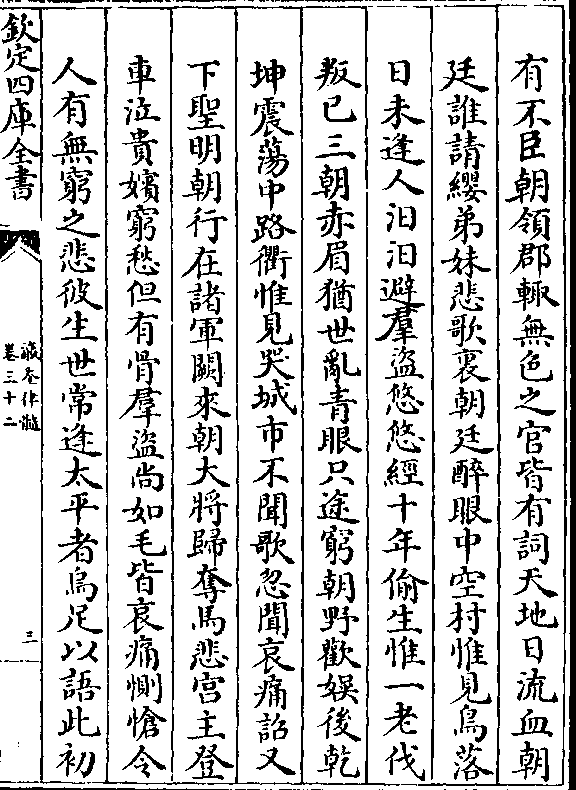 有不臣朝領郡輙無色之官皆有詞天地日流血朝
廷誰請纓弟妹悲歌裏朝廷醉眼中空村惟見鳥落
日未逢人汩汩避羣盜悠悠經十年偷生惟一老伐
叛已三朝赤眉猶世亂青眼只途窮朝野歡娛後乾
坤震蕩中路衢惟見哭城市不聞歌忽聞哀痛詔又
下聖明朝行在諸軍闕來朝大將歸奪馬悲宫主登
車泣貴嬪窮愁但有骨羣盜尚如毛皆哀痛惻愴令
人有無窮之悲彼生世常逢太平者烏足以語此初
欽定四庫全書
瀛奎律髓
卷三十二
三